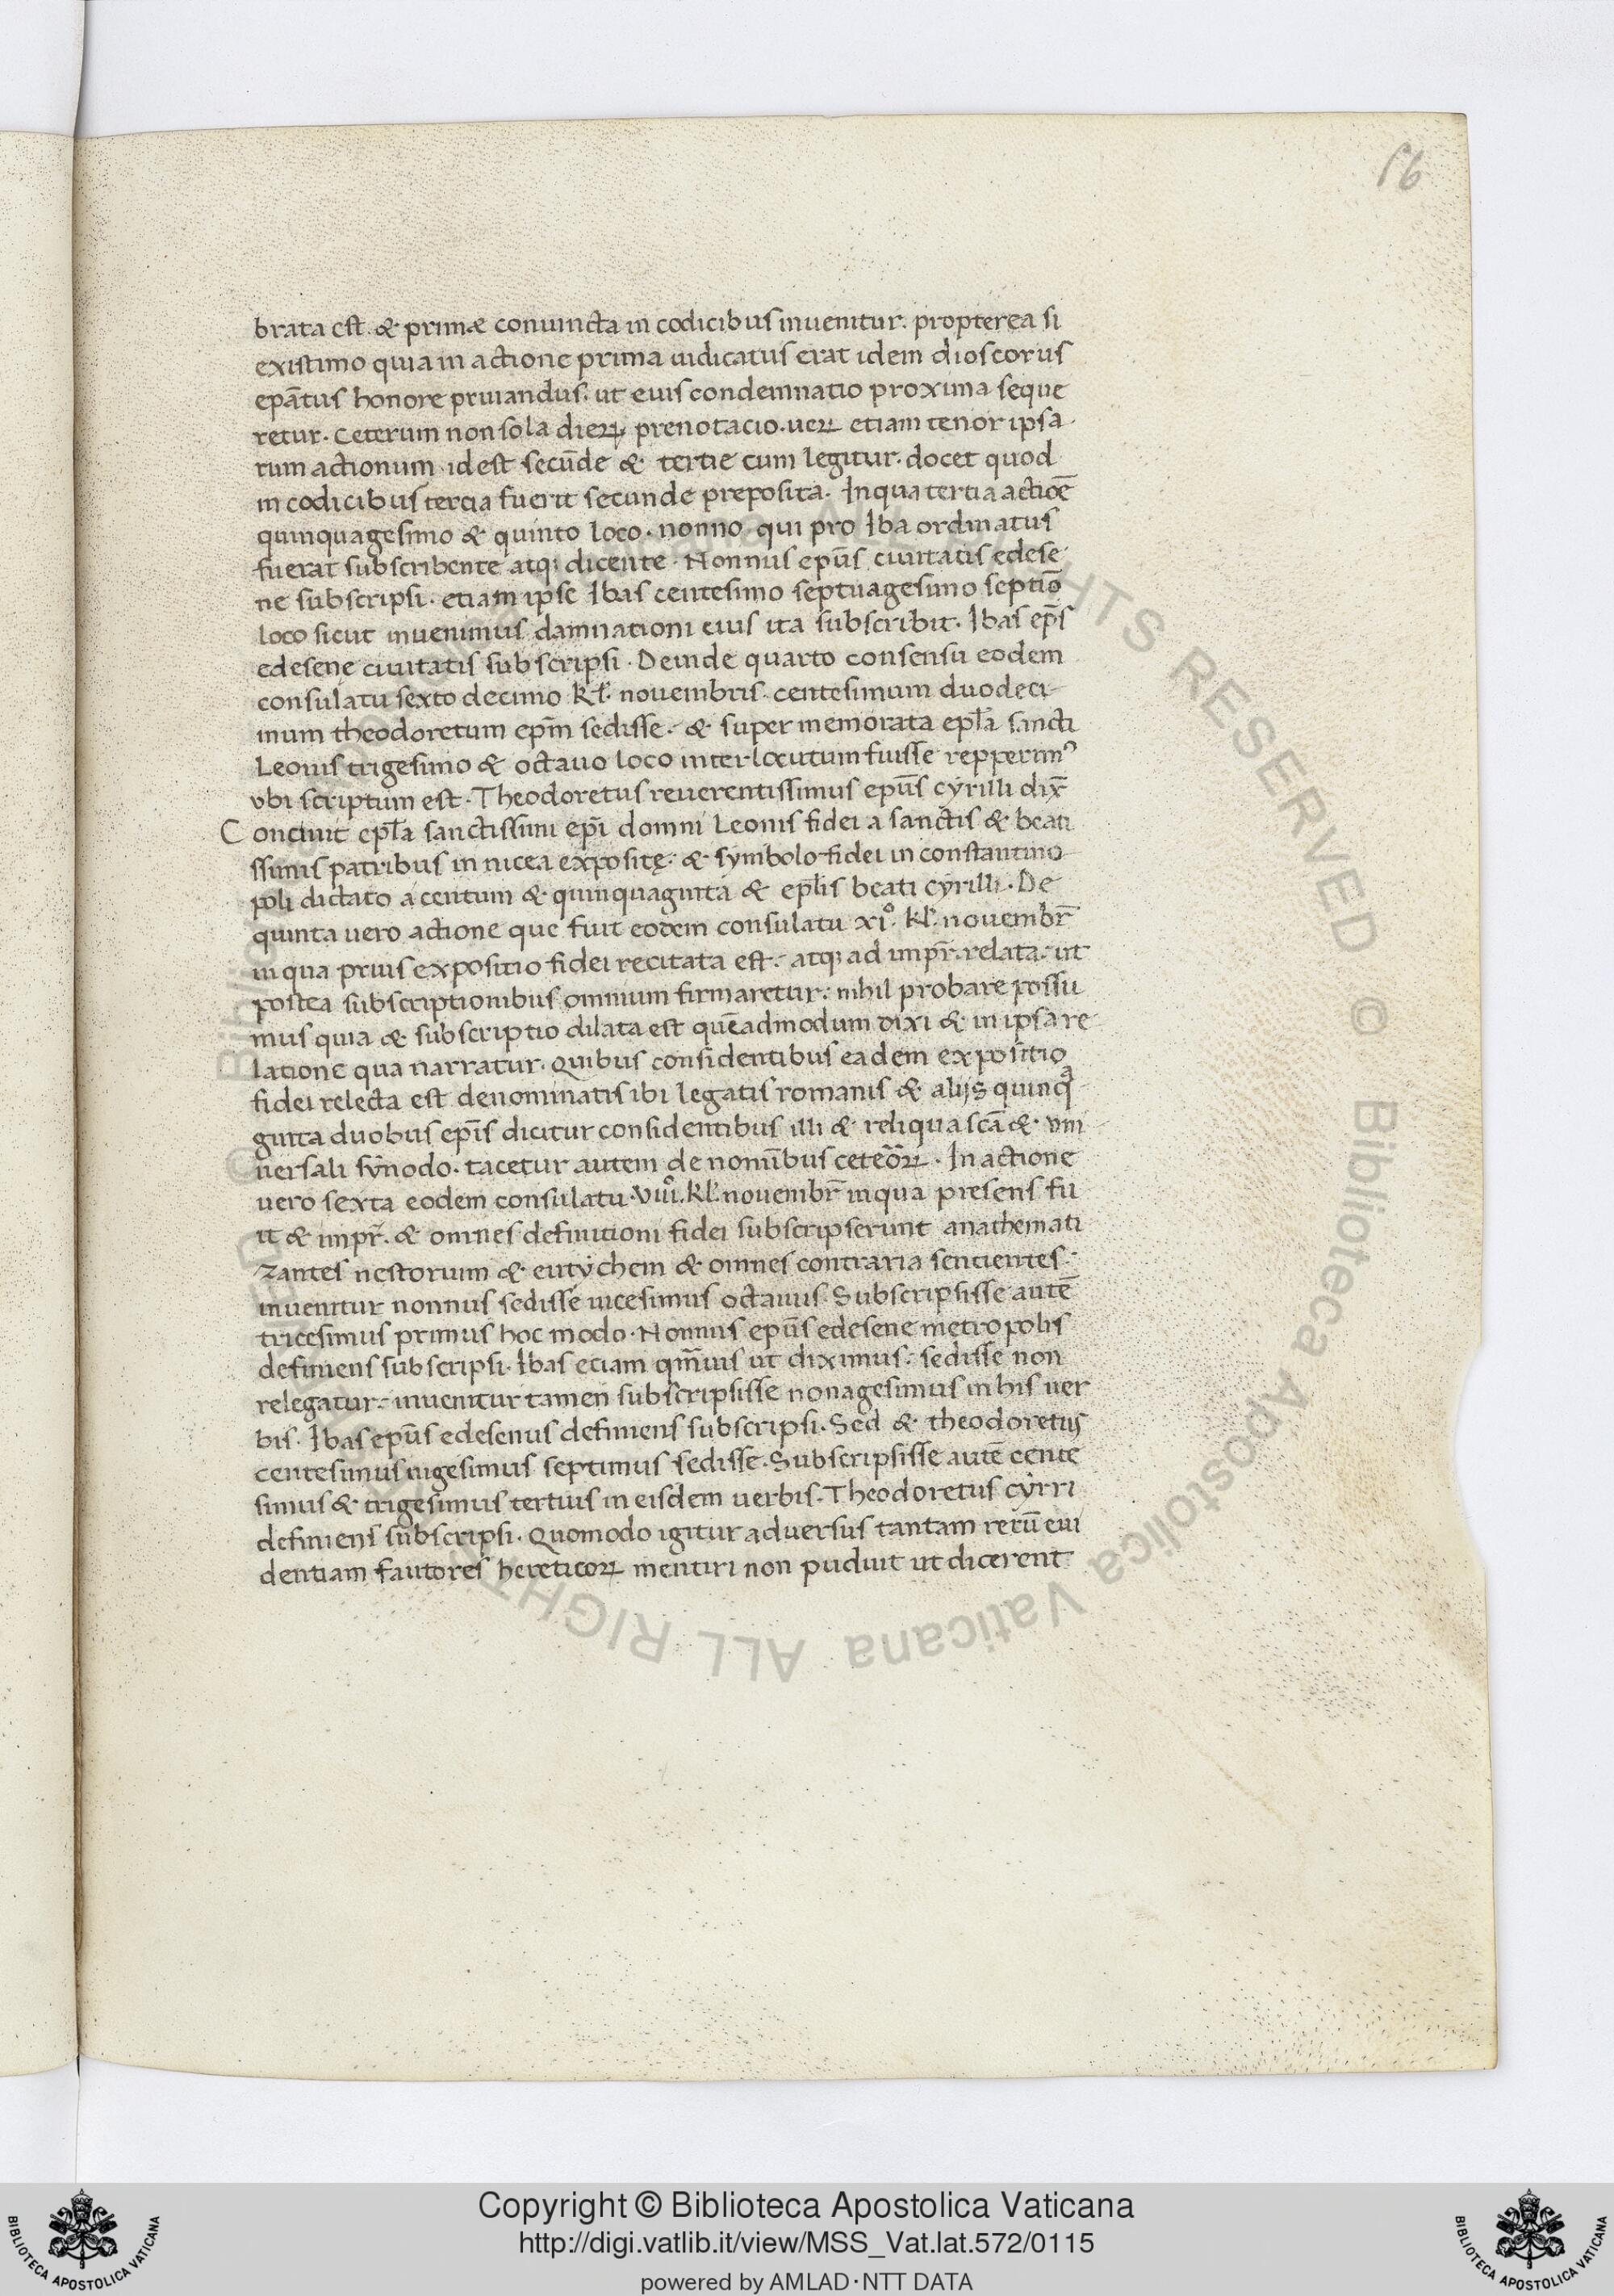 56
brata est. & primæ conuincta in codicibus inuenitur. propterea si
existimo quia in actione prima iudicatus erat idem dioscorus
epat̄us honore priuandus. ut eius condemnatio proxima seque
retur. Ceterum non sola dieꝝ prenotacio. ueꝝ etiam tenor ipsa
rum actionum id est secūde & tertie cum legitur. docet quod
in codicibus tercia fuerit secunde preposita. In qua tertia actiōe
quinquagesimo & quinto loco. nonno qui pro Iba ordinatus
fuerat subscribente atq; dicente. Nonnus epūs ciuitatis edese
ne subscripsi. etiam ipse Ibas centesimo septuagesimo septiō
loco sicut inuenimus damnationi eius ita subscribit. Ibas ep̄s
edesene ciuitatis subscripsi. Deinde quarto consensu eodem
consulatu sexto decimo kł. nouembris. centesimum duodeci
mum theodoretum ep̄m sedisse. & super memorata epła sancti
Leonis trigesimo & octauo loco interlocutum fuisse repperimꝰ
vbi scriptum est. Theodoretus reuerentissimus epūs cyrilli dix̄
Concinit epła sanctissimi epī domni Leonis fidei a sanctis & beati
ssimis patribus in nicea expositę. & symbolo fidei in constantino
poli dictato a centum & quinquaginta & epłis beati cyrilli. De
quinta uero actione que fuit eodem consulatu xi°. kł. nouembr̄
in qua prius expositio fidei recitata est. atq; ad impr̄. relata. ut
postea subscriptionibus omnium firmaretur. nihil probare possu
mus quia & subscriptio dilata est quēadmodum dixi & in ipsa re
latione qua narratur. Quibus considentibus eadem expositio
fidei relecta est denominatis ibi legatis romanis & alijs quinqᵃ
ginta duobus epīs dicitur considentibus illi & reliqua scā & vni
uersali synodo. tacetur autem de nomībus ceteroꝝ. In actione
uero sexta eodem consulatu. viii°. kł. nouembr̄ in qua presens fu
it & impr̄. & omnes definitioni fidei subscripserunt anathemati
zantes nestorium & eutychem & omnes contraria sentientes.
inuenitur nonnus sedisse uicesimus octauus. Subscripsisse autē
tricesimus primus hoc modo. Nonnus epūs edesene metropolis
definiens subscripsi. Ibas etiam qm̄uis ut diximus. sedisse non
relegatur. inuenitur tamen subscripsisse nonagesimus in his uer
bis. Ibas epūs edesenus definiens subscripsi. Sed & theodoretus
centesimus uigesimus septimus sedisse. Subscripsisse autē cente
simus & trigesimus tertius in eisdem uerbis. Theodoretus cyrri
definiens subscripsi. Quomodo igitur aduersus tantam rerū eui
dentiam fautores hereticoꝝ mentiri non puduit ut dicerent
© Biblioteca Apostolica Vaticana ALL RIGHTS RESERVED
BIBLIOTECA APOSTOLICA VATICANA
Copyright © Biblioteca Apostolica Vaticana
http://digi.vatlib.it/view/MSS_Vat.lat.572/0115
powered by AMLAD·NTT DATA
BIBLIOTECA APOSTOLICA VATICANA